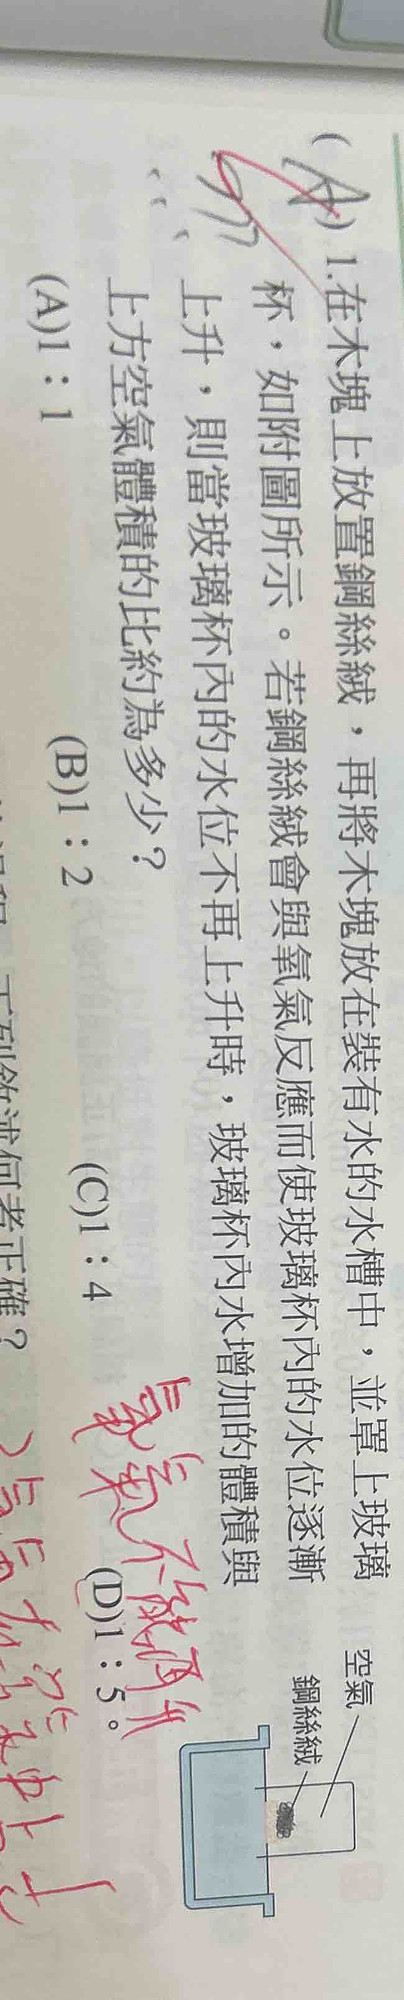 (A) 1.在木塊上放置鋼絲絨，再將木塊放在裝有水的水槽中，並罩上玻璃
杯，如附圖所示。若鋼絲絨會與氧氣反應而使玻璃杯內的水位逐漸
上升，則當玻璃杯內的水位不再上升時，玻璃杯內水增加的體積與
上方空氣體積的比約為多少？
(A)1：1 (B)1：2 (C)1：4 (D)1：5。
空氣
鋼絲絨
下列敘述何者正確？